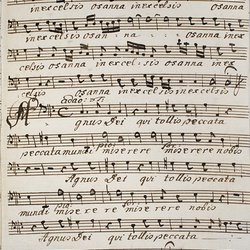 inexcelsis osanna inexcelsis osanna
inexcelsis osan na osanna inex
celsis osanna inexcelsis osanna inex
celsis osanna inexcelsis osanna inexcelsis
Agnus Dei qui tollis peccata
peccata mundi miserere miserere nobis
Agnus Dei qui tollis peccata
mundi miserere miserere nobis
Agnus Dei qui tollis peccata